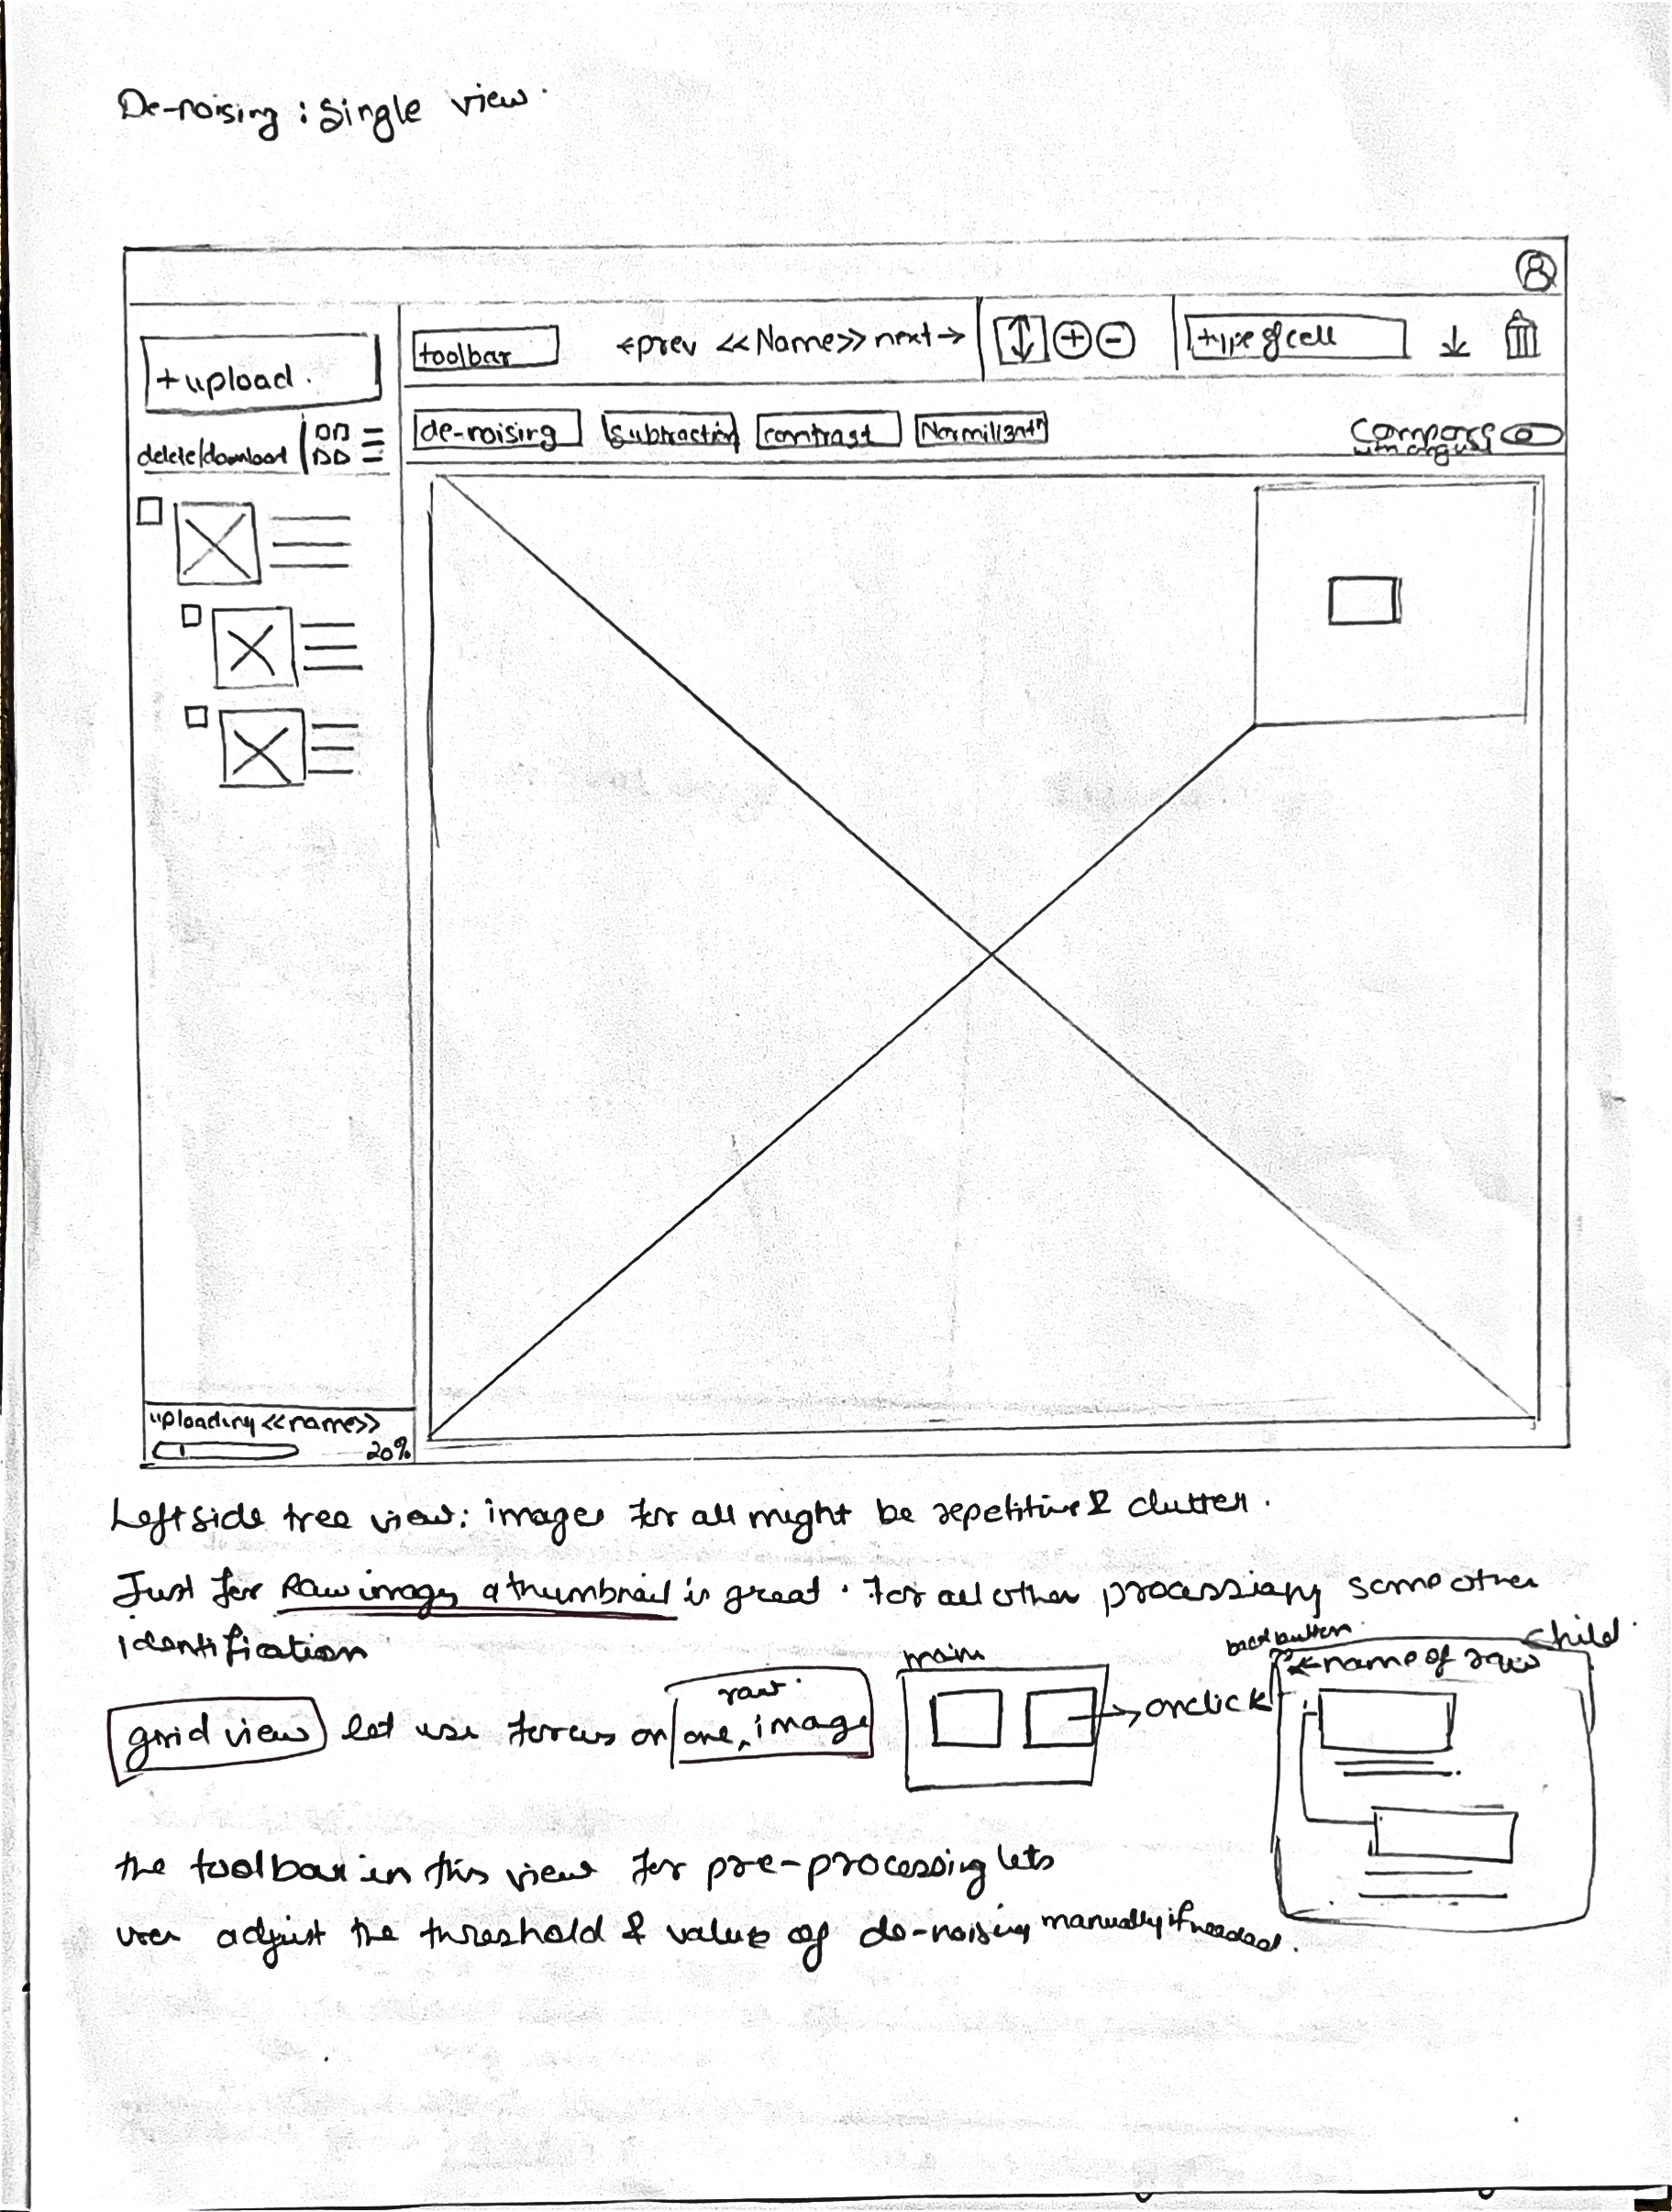 De-noising : Single view.
+upload.
toolbar
←prev <<Name>> next→
type of cell
delete/download
de-noising
Subtraction
contrast
Compare
uploading <<name>>
20%
Left side tree view: images for all might be repetitive & clutter.
Just for Raw image, a thumbnail is great. For all other processing some other
identification
grid view let use focus on one raw image
main
→ onclick
back button
child
← name of raw
the toolbar in this view for pre-processing lets
user adjust the threshold & value of de-noising manually if needed.